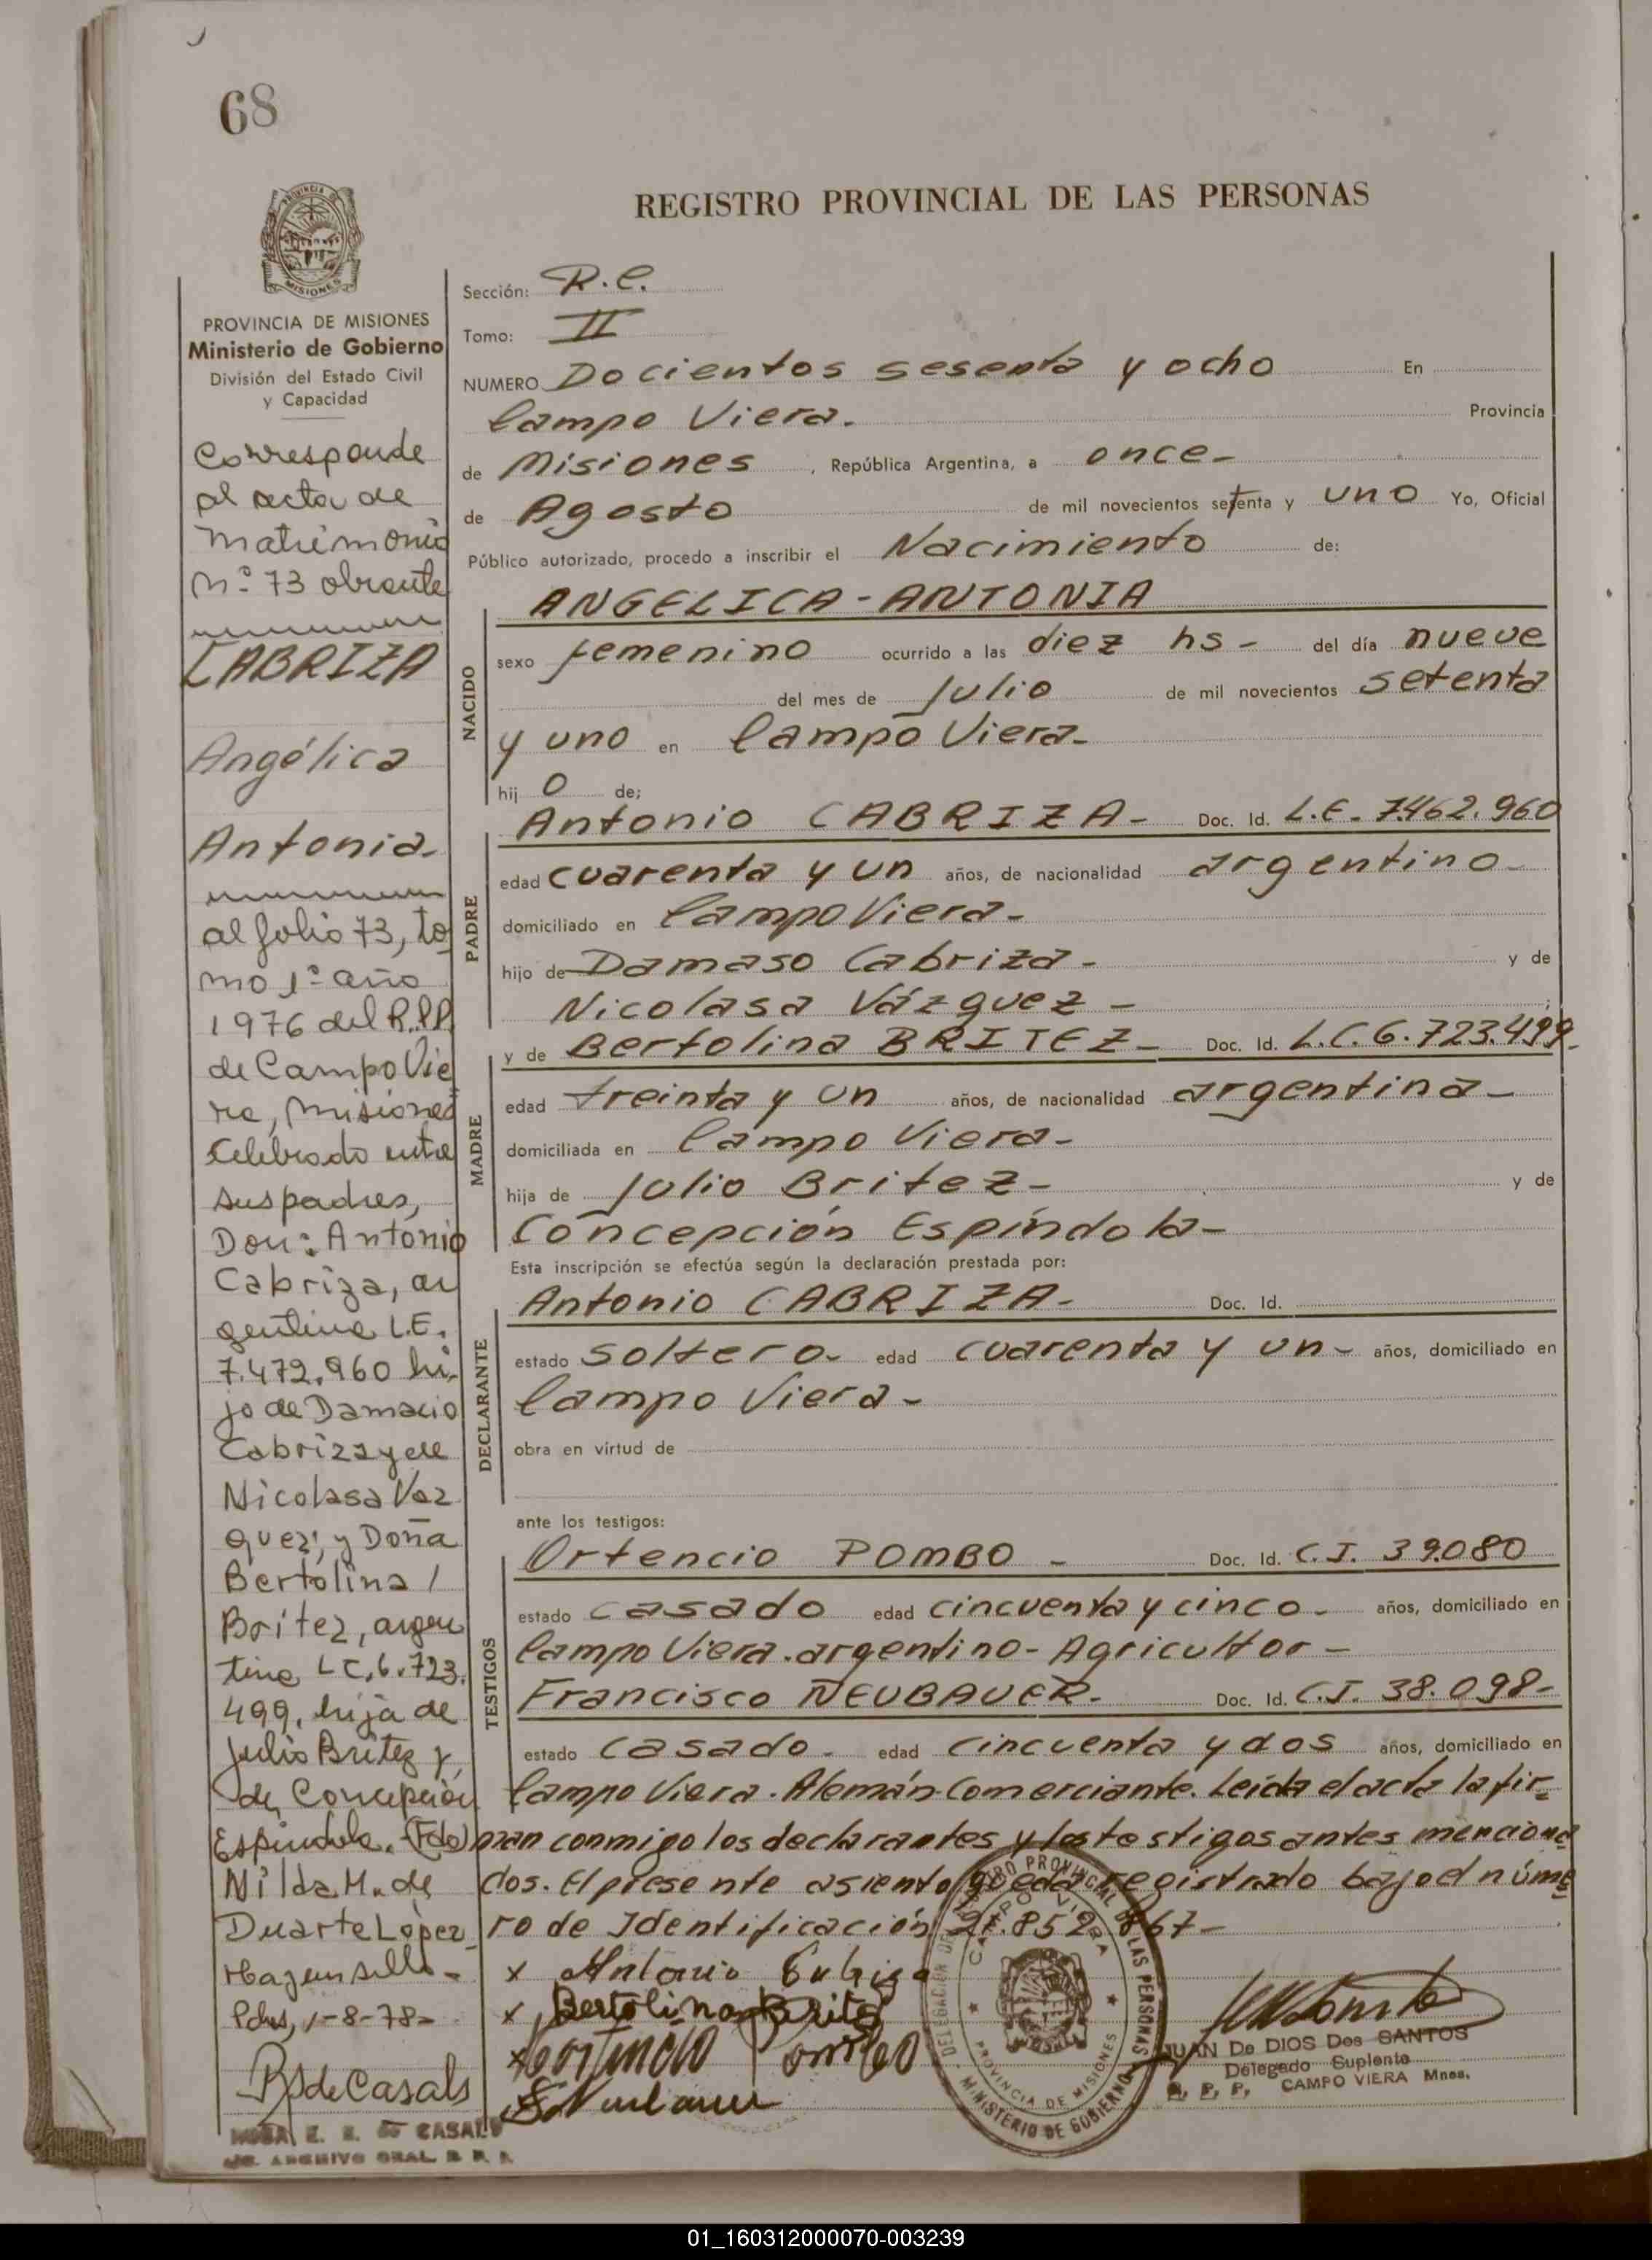 68
REGISTRO PROVINCIAL DE LAS PERSONAS
PROVINCIA DE
MISIONES
PROVINCIA DE MISIONES
Ministerio de Gobierno
División del Estado Civil
y Capacidad
Corresponde
al acta de
matrimonio
n.º 73 obrante
CABRIZA
Angélica
Antonia-
al folio 73, to
mo 1º año
1976 del R.P.P.
de Campo Vie
ra, Misiones
celebrado entre
sus padres,
Don: Antonio
Cabriza, ar
gentino L.E.
7.472.960 hi-
jo de Damacio
Cabriza y de
Nicolasa Vaz
quez; y Doña
Bertolina /
Britez, argen
tina L.C. 6.723.
499, hija de
Julio Britez y
de Concepción
Espindola. (Fdo)
Nilda M. de
Duarte López
Hay un sello-
Pdas, 1-8-78-
R S de Casals
E. S. de CASALS
ARCHIVO GRAL. R. P. P.
Sección: R.C.
Tomo: II
NUMERO Docientos sesenta y ocho En
Campo Viera. Provincia
de Misiones , República Argentina, a once-
de Agosto de mil novecientos setenta y uno Yo, Oficial
Público autorizado, procedo a inscribir el Nacimiento de:
NACIDO
ANGELICA-ANTONIA
sexo femenino ocurrido a las diez hs- del día nueve
del mes de Julio de mil novecientos setenta
y uno en Campo Viera-
hij o de;
PADRE
Antonio CABRIZA- Doc. Id. L.E. 7.462.960
edad cuarenta y un años, de nacionalidad argentino-
domiciliado en Campo Viera-
hijo de Damaso Cabriza- y de
Nicolasa Vázquez- ;
MADRE
y de Bertolina BRITEZ- Doc. Id. L.C. 6.723.499-
edad treinta y un años, de nacionalidad argentina-
domiciliada en Campo Viera-
hija de Julio Britez- y de
Concepción Espíndola-
Esta inscripción se efectúa según la declaración prestada por:
DECLARANTE
Antonio CABRIZA- Doc. Id.
estado soltero- edad cuarenta y un- años, domiciliado en
Campo Viera-
obra en virtud de
ante los testigos:
TESTIGOS
Ortencio POMBO - Doc. Id. C.I. 39.080
estado casado edad cincuenta y cinco- años, domiciliado en
Campo Viera. argentino- Agricultor-
Francisco NEUBAUER- Doc. Id. C.I. 38.098-
estado casado- edad cincuenta y dos años, domiciliado en
Campo Viera. Alemán-Comerciante. Leída el acta la fir-
man conmigo los declarantes y los testigos antes menciona
dos. El presente asiento queda registrado bajo el núme
ro de Identificación 21.852.867-
x Antonio Cabriza
x Bertolina Britez
x Hortencio Pombo
DELEGACION DEL REGISTRO PROVINCIAL DE LAS PERSONAS
CAMPO VIERA
PROVINCIA DE MISIONES
MINISTERIO DE GOBIERNO
JUAN De DIOS Dos SANTOS
Delegado Suplente
R. P. P. CAMPO VIERA Mnes.
01_160312000070-003239